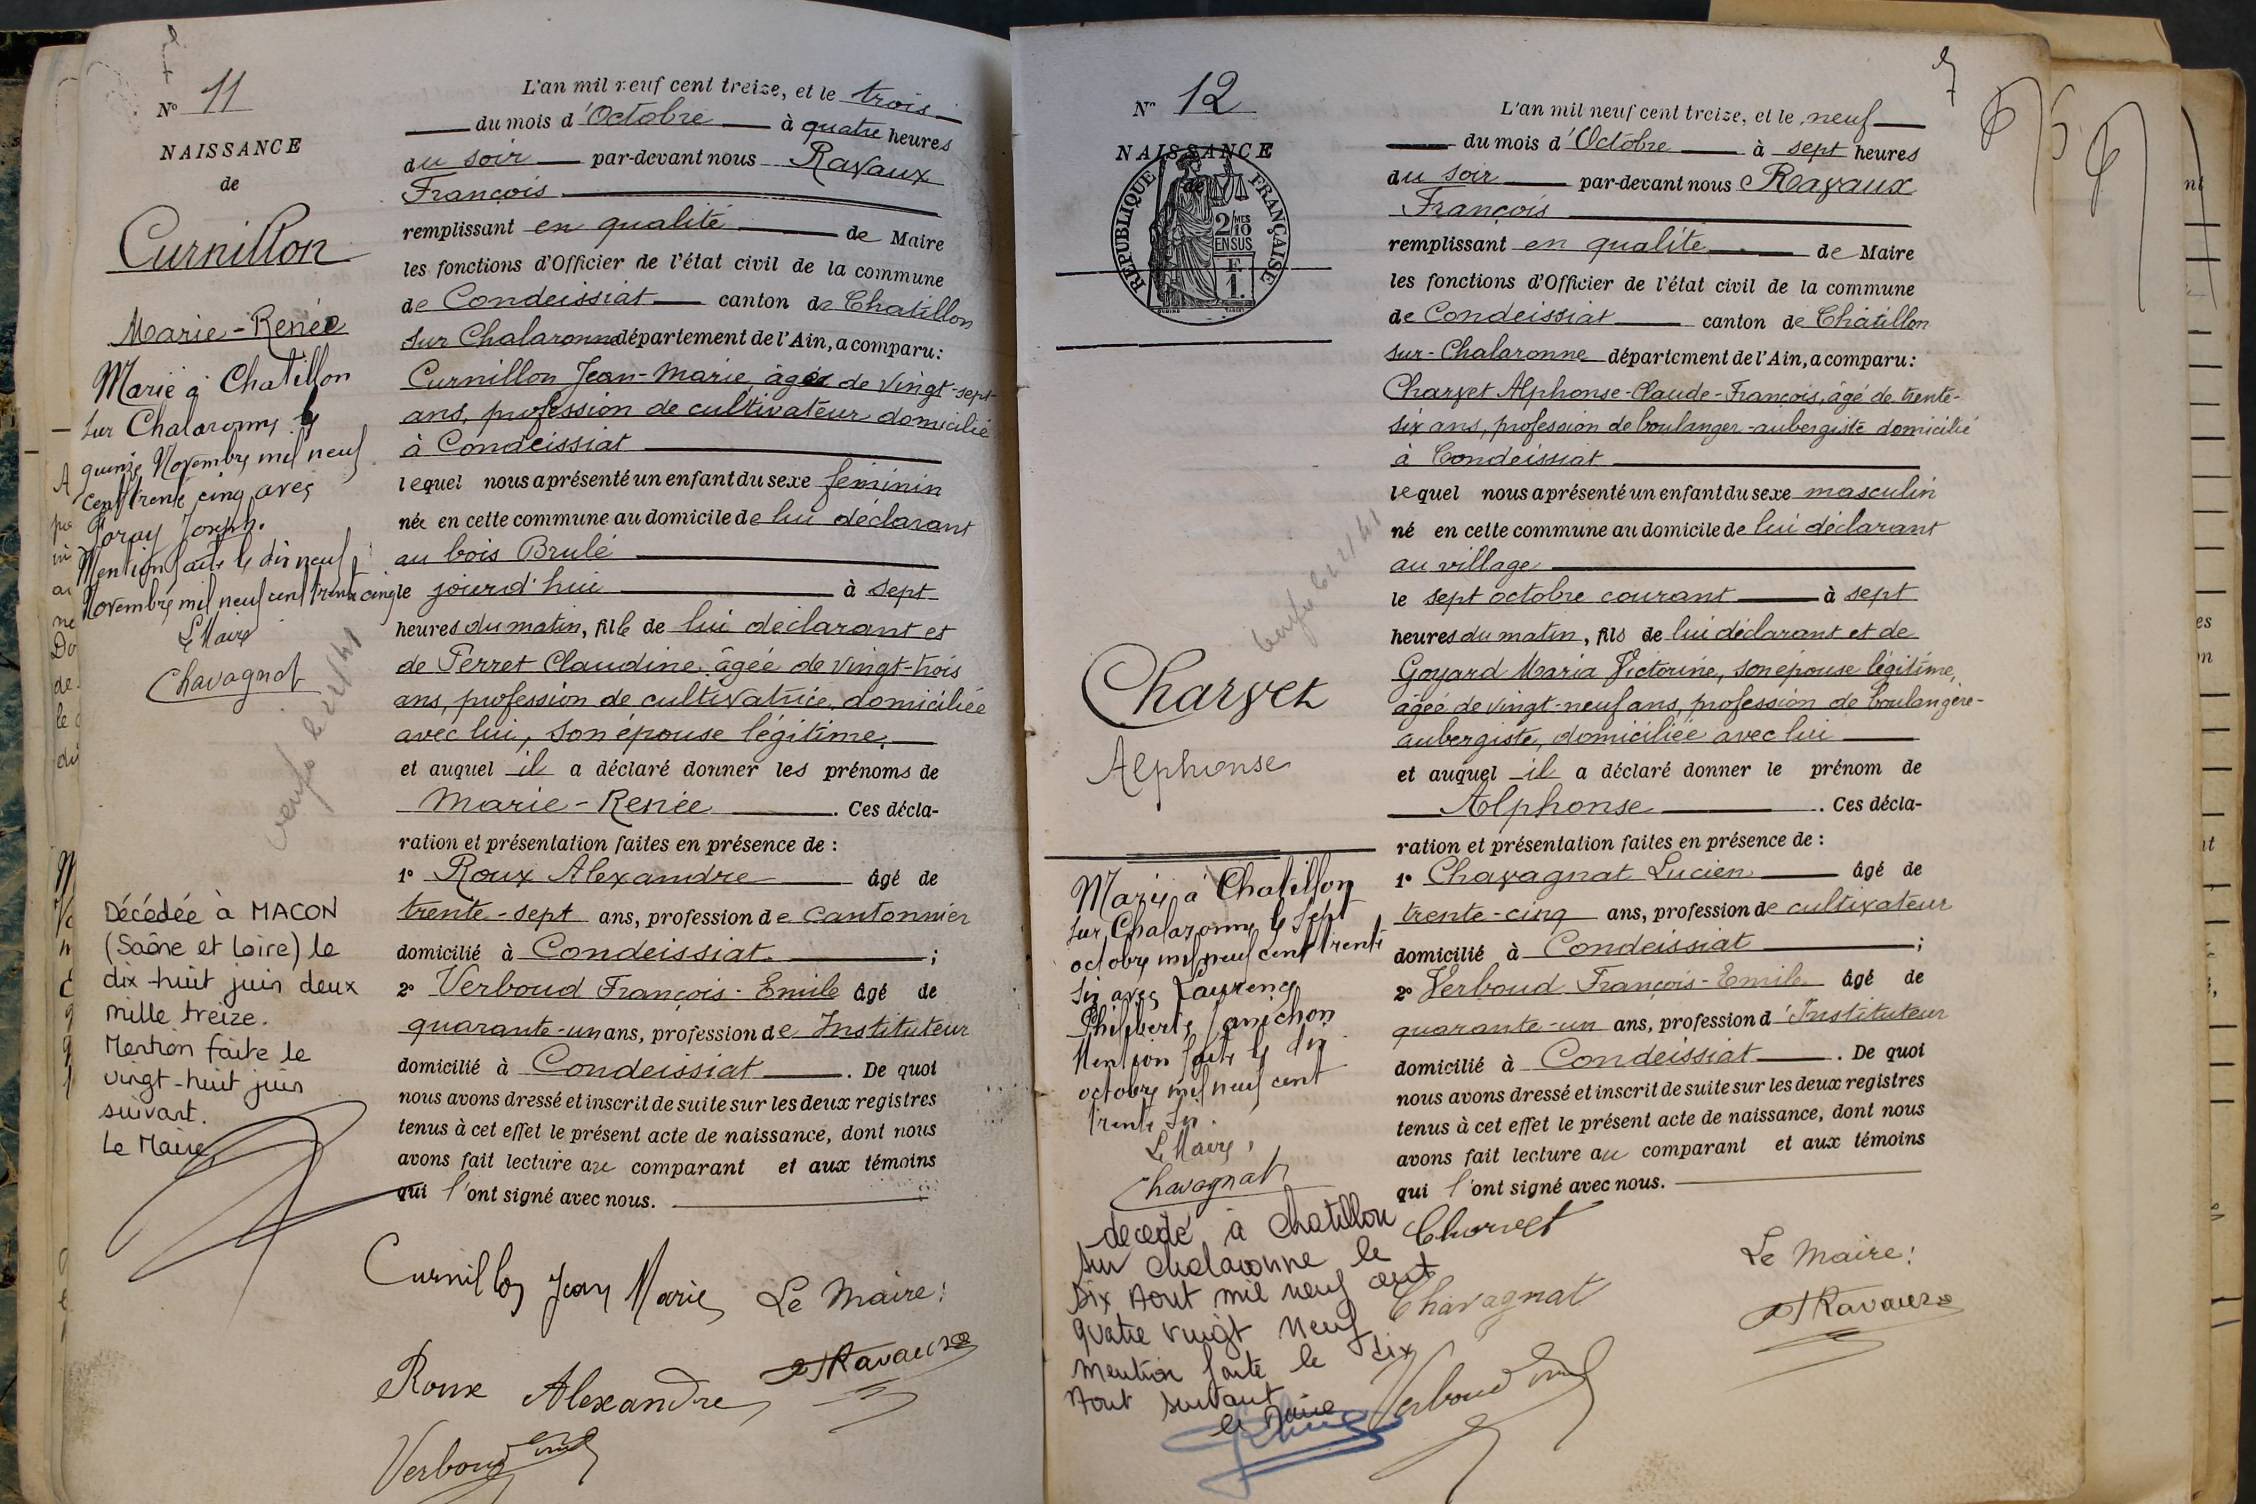 N° 11
NAISSANCE
de
Curnillon
Marie-Renée
Marié à Chatillon
sur Chalaronne le
quinze Novembre mil neuf
cent trente cinq avec
Foray Joseph.
Mention faite le dix neuf
Novembre mil neuf cent trente cinq
Le Maire
Chavagnat
Décédée à MACON
(Saône et Loire) le
dix-huit juin deux
mille treize.
Mention faite le
vingt-huit juin
suivant.
Le Maire
L'an mil neuf cent treize, et le trois
du mois d'Octobre à quatre heures
du soir par-devant nous Ravaux
François
remplissant en qualité de Maire
les fonctions d'Officier de l'état civil de la commune
de Condeissiat canton de Chatillon
sur Chalaronne département de l'Ain, a comparu :
Curnillon Jean-Marie, âgé de vingt-sept
ans, profession de cultivateur domicilié
à Condeissiat
lequel nous a présenté un enfant du sexe féminin
née en cette commune au domicile de lui déclarant
au bois Brulé
le jourd'hui à sept
heures du matin, fille de lui déclarant et
de Perret Claudine, âgée de vingt-trois
ans, profession de cultivatrice, domiciliée
avec lui, son épouse légitime,
et auquel il a déclaré donner les prénoms de
Marie-Renée. Ces décla-
ration et présentation faites en présence de :
1° Roux Alexandre âgé de
trente-sept ans, profession de cantonnier
domicilié à Condeissiat. ;
2° Verboud François-Emile âgé de
quarante-un ans, profession de Instituteur
domicilié à Condeissiat. De quoi
nous avons dressé et inscrit de suite sur les deux registres
tenus à cet effet le présent acte de naissance, dont nous
avons fait lecture au comparant et aux témoins
qui l'ont signé avec nous.
Curnillon Jean Marie Le Maire :
Roux Alexandre Ravaux
Verboud
7
N° 12
NAISSANCE
de
RÉPUBLIQUE FRANÇAISE
2/10 MES
EN SUS
F.
1.
Charvet
Alphonse
Marié à Chatillon
sur Chalaronne le sept
octobre mil neuf cent trente
six avec Laurence
Philiberte Janichon
Mention faite le dix
octobre mil neuf cent
trente six.
Le Maire,
Chavagnat
décédé à Chatillon
sur Chalaronne le
six Aout mil neuf cent
quatre vingt neuf
mention faite le dix
Aout suivant
le Maire
L'an mil neuf cent treize, et le neuf
du mois d'Octobre à sept heures
du soir par-devant nous Ravaux
François
remplissant en qualité de Maire
les fonctions d'Officier de l'état civil de la commune
de Condeissiat canton de Châtillon
sur-Chalaronne département de l'Ain, a comparu :
Charvet Alphonse-Claude-François, âgé de trente-
six ans, profession de boulanger-aubergiste domicilié
à Condeissiat
lequel nous a présenté un enfant du sexe masculin
né en cette commune au domicile de lui déclarant
au village
le sept octobre courant à sept
heures du matin, fils de lui déclarant et de
Goyard Maria Victorine, son épouse légitime,
âgée de vingt-neuf ans, profession de boulangère-
aubergiste, domiciliée avec lui
et auquel il a déclaré donner le prénom de
Alphonse. Ces décla-
ration et présentation faites en présence de :
1° Chavagnat Lucien âgé de
trente-cinq ans, profession de cultivateur
domicilié à Condeissiat ;
2° Verboud François-Emile âgé de
quarante-un ans, profession d'Instituteur
domicilié à Condeissiat. De quoi
nous avons dressé et inscrit de suite sur les deux registres
tenus à cet effet le présent acte de naissance, dont nous
avons fait lecture au comparant et aux témoins
qui l'ont signé avec nous.
Charvet
Le Maire :
Chavagnat
Ravaux
Verboud